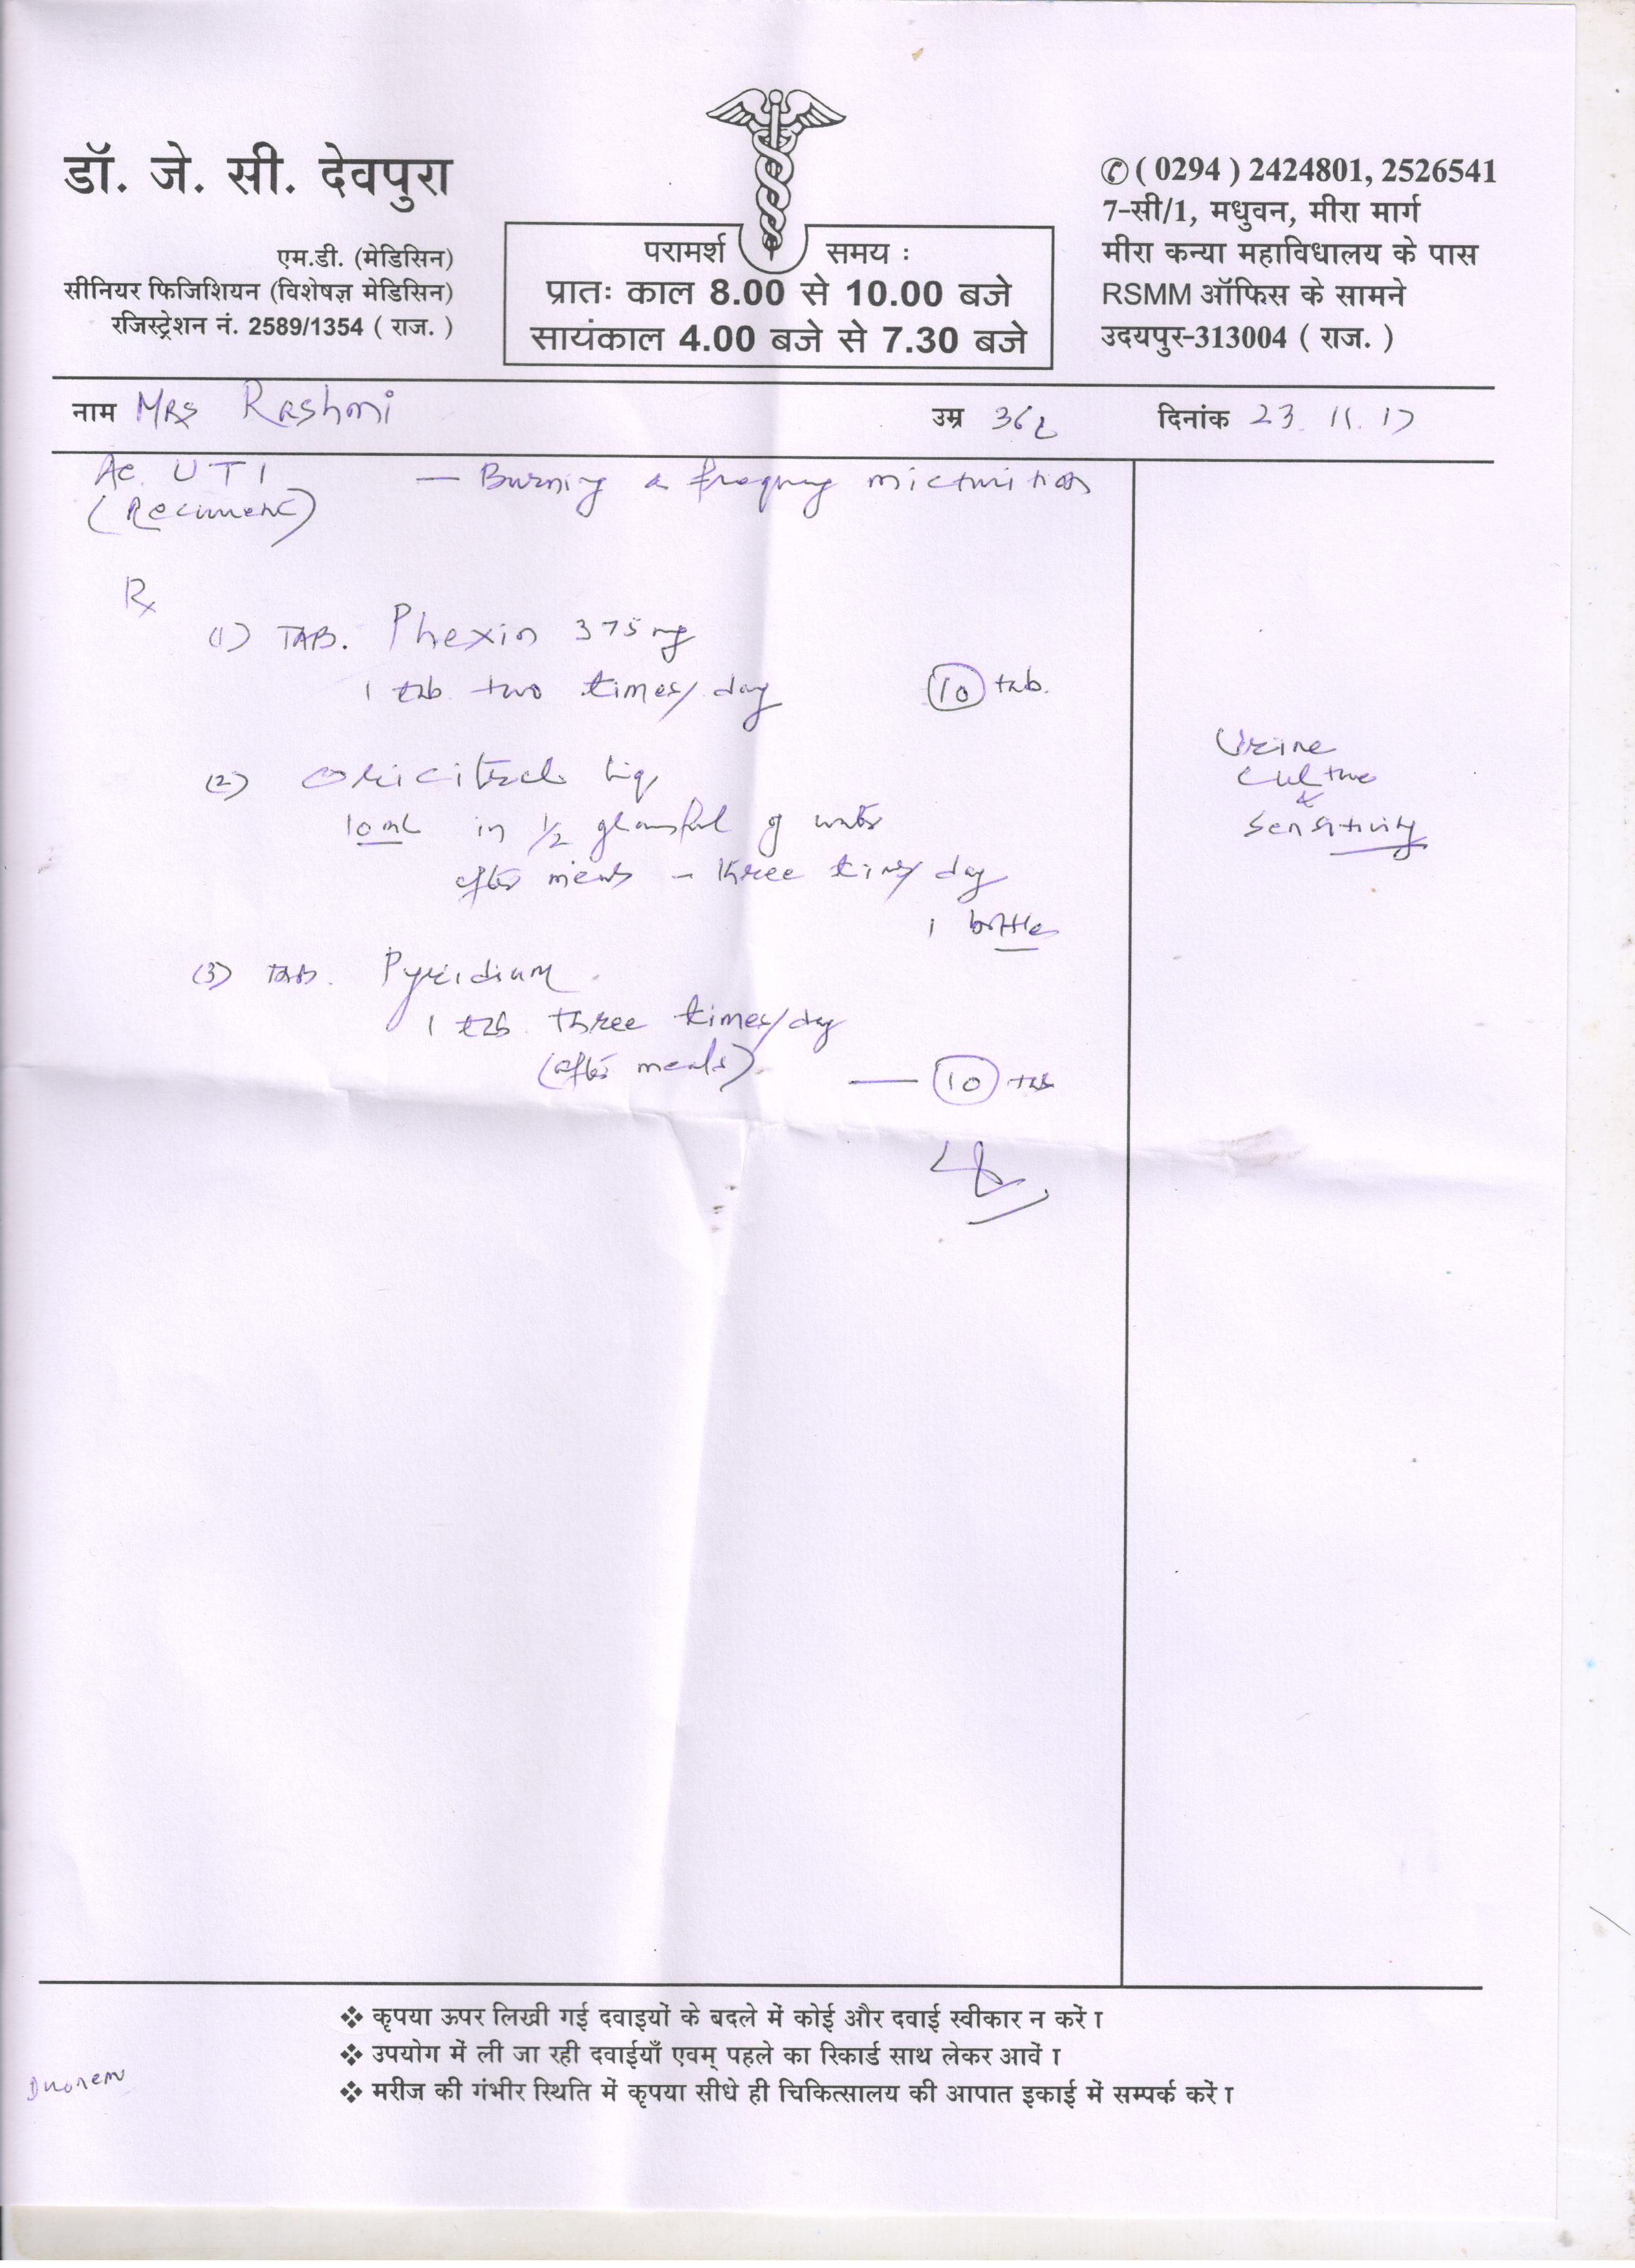 डॉ. जे. सी. देवपुरा
एम.डी. (मेडिसिन)
सीनियर फिजिशियन (विशेषज्ञ मेडिसिन)
रजिस्ट्रेशन नं. 2589/1354 ( राज. )
परामर्श समय :
प्रातः काल 8.00 से 10.00 बजे
सायंकाल 4.00 बजे से 7.30 बजे
✆ ( 0294 ) 2424801, 2526541
7-सी/1, मधुवन, मीरा मार्ग
मीरा कन्या महाविधालय के पास
RSMM ऑफिस के सामने
उदयपुर-313004 ( राज. )
नाम MRS Rashmi उम्र 36 दिनांक 23.11.17
Ac. UTI — Burning & micturition
(Recurrent)
Rx
(1) TAB. Phexin 375 mg
1 tab. two times/day 10 tab.
(2) Oricitral liq
10 ml in 1/2 glassful of water
after meals – three times/day
1 bottle
(3) TAB. Pyridium
1 tab. three times/day
(after meals) — 10 tab
Urine
culture
&
sensitivity
❖ कृपया ऊपर लिखी गई दवाइयों के बदले में कोई और दवाई स्वीकार न करें ।
❖ उपयोग में ली जा रही दवाईयाँ एवम् पहले का रिकार्ड साथ लेकर आवें ।
❖ मरीज की गंभीर स्थिति में कृपया सीधे ही चिकित्सालय की आपात इकाई में सम्पर्क करें ।